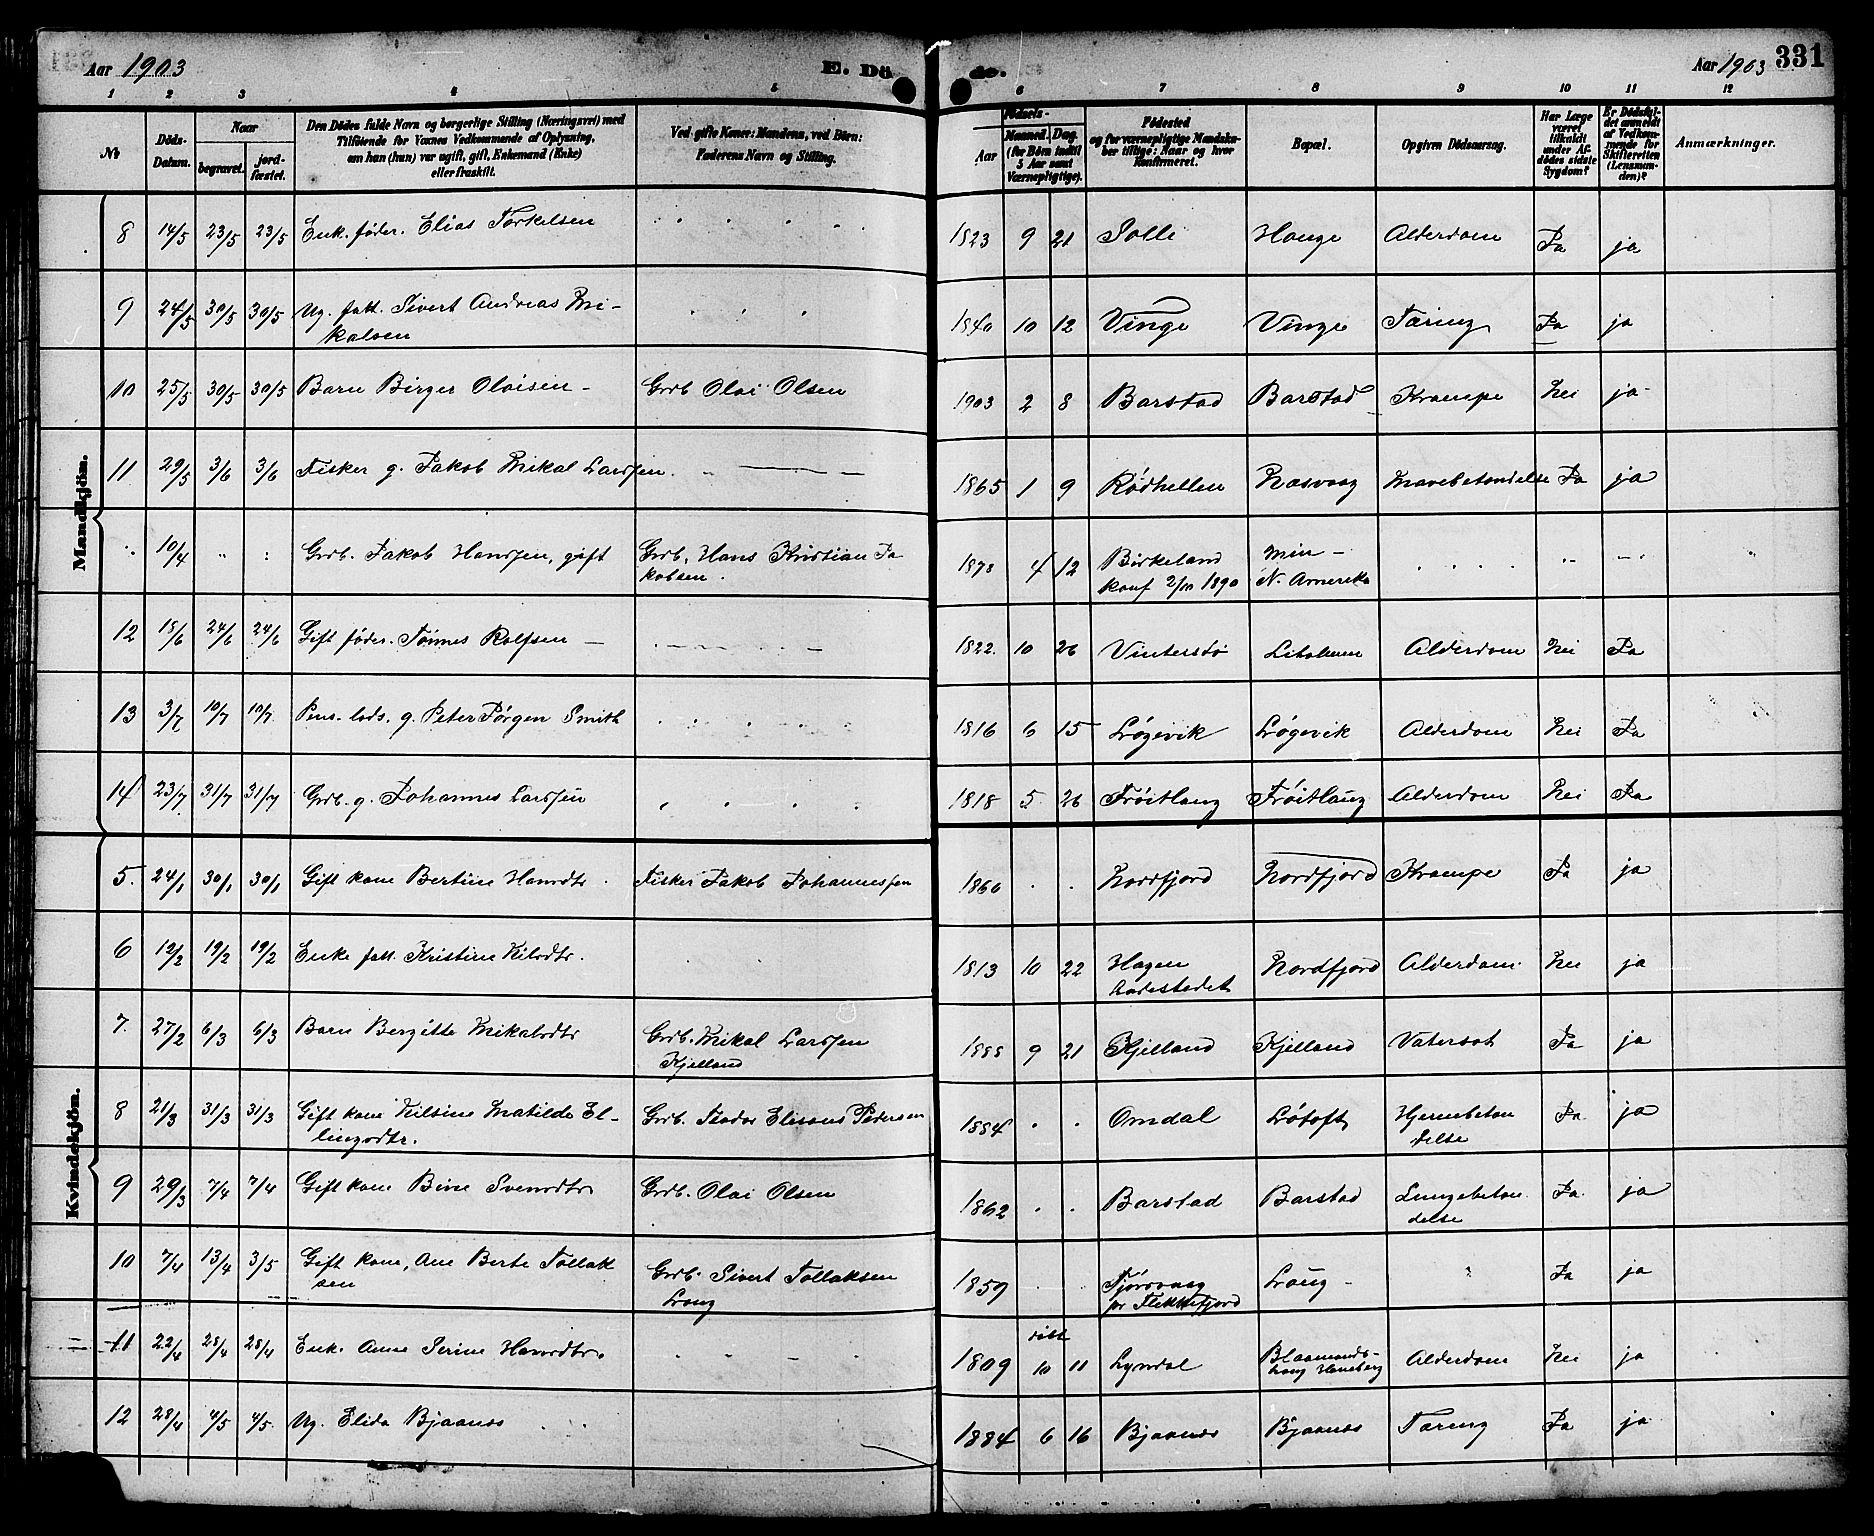 Aar 1903
E. Dö
de.
Aar 1903 331
1 2 3 4 5 6 7 8 9 10 11 12
№
Döds-Datum.
Naar
begravet.
jord-fæstet.
Den Dödes fulde Navn og borgerlige Stilling (Næringsvei) med
Tilföiende for Voxnes Vedkommende af Oplysning,
om han (hun) var ugift, gift, Enkemand (Enke)
eller fraskilt.
Ved gifte Koner: Mandens, ved Börn:
Faderens Navn og Stilling.
Födsels-
Aar
Maaned. Dag.
(for Börn indtil
5 Aar samt
Værnepligtige).
Födested
og for værnepligtige Mandskaber tillige: Naar og hvor
konfirmeret.
Bopæl.
Opgiven Dödsaarsag.
Har Læge
været
tilkaldt
under Afdödes sidste
Sygdom?
Er Dödsfaldet anmeldt
af Vedkommende for
Skifteretten
(Lensmanden)?
Anmærkninger.
Mandkjön.
8 14/5 23/5 23/5 Enk. föder. Elias Torkelsen 1823 9 21 Solli Hauge Alderdom Ja ja
9 24/5 30/5 30/5 Ug. fatt. Sivert Andreas Mikalsen 1840 10 12 Vinge Vinge Tæring Ja ja
10 25/5 30/5 30/5 Barn Birger Olaisen - Grdb Olai Olsen 1903 2 8 Barstad Barstad Krampe Nei ja
11 29/5 3/6 3/6 Fisker g. Jakob Mikal Larssen 1865 1 9 Rødhellen Rasvaag Mavebetændelse Ja ja
10/4 Grdb. Jakob Hanssen, gift Grdb. Hans Kristian Jakobsen. 1878 4 12 Birkeland konf 2/10 1890 Min - N. Amerika
12 18/6 24/6 24/6 Gift föder. Tønnes Rolfsen 1822 10 26 Vinterstø Alderdom Nei Ja
13 3/7 10/7 10/7 Pens. lods. g. Peter Jørgen Smith 1816 6 15 Løgevik Løgevik Alderdom Nei Ja
14 23/7 31/7 31/7 Grdb. g. Johannes Larssen 1818 5 26 Frøitlang Frøitlang Alderdom Nei Ja
Kvindekjön.
5. 24/1 30/1 30/1 Gift kone Bertine Hansdtr. Fisker Jakob Johannessen 1860 Nordfjord Nordfjord Krampe Ja ja
6 12/2 19/2 19/2 Enke fatt. Kristine Nilsdtr. 1813 10 22 Hagen Nordfjord Alderdom Nei ja
7. 27/2 6/3 6/3 Barn Bergitte Mikalsdtr Grdb. Mikal Larssen Kjelland 1888 9 21 Kjelland Kjelland Vatersot Ja ja
8 21/3 31/3 31/3 Gift kone Nilsine Matilde Ellingsdtr. Grdb. Teodor Pedersen 1884 Omdal Løtoft Hjernebetændelse Ja ja
9 29/3 7/4 7/4 Gift kone Bine Svensdtr Grdb. Olai Olsen 1862 Barstad Barstad Lungebetændelse Ja ja
10 7/4 13/4 3/5 Gift kone, Ane Berte Tollaksen Grdb. Sivert Tollaksen 1859 Tjørsvaag pr Flekkefjord Ja ja
11 22/4 28/4 28/4 Enk. Anne Serine Hansdtr. 1809 døbt 10 11 Lyndal Alderdom Nei ja
12 28/4 4/5 4/5 Ug. Elida Bjaanes 1884 6 16 Bjaanes Bjaanes Tæring Ja ja